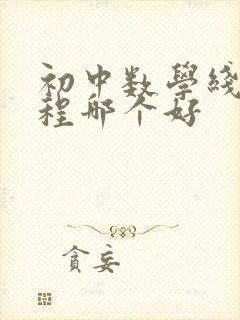 初中数学线
程哪个好
贪妄